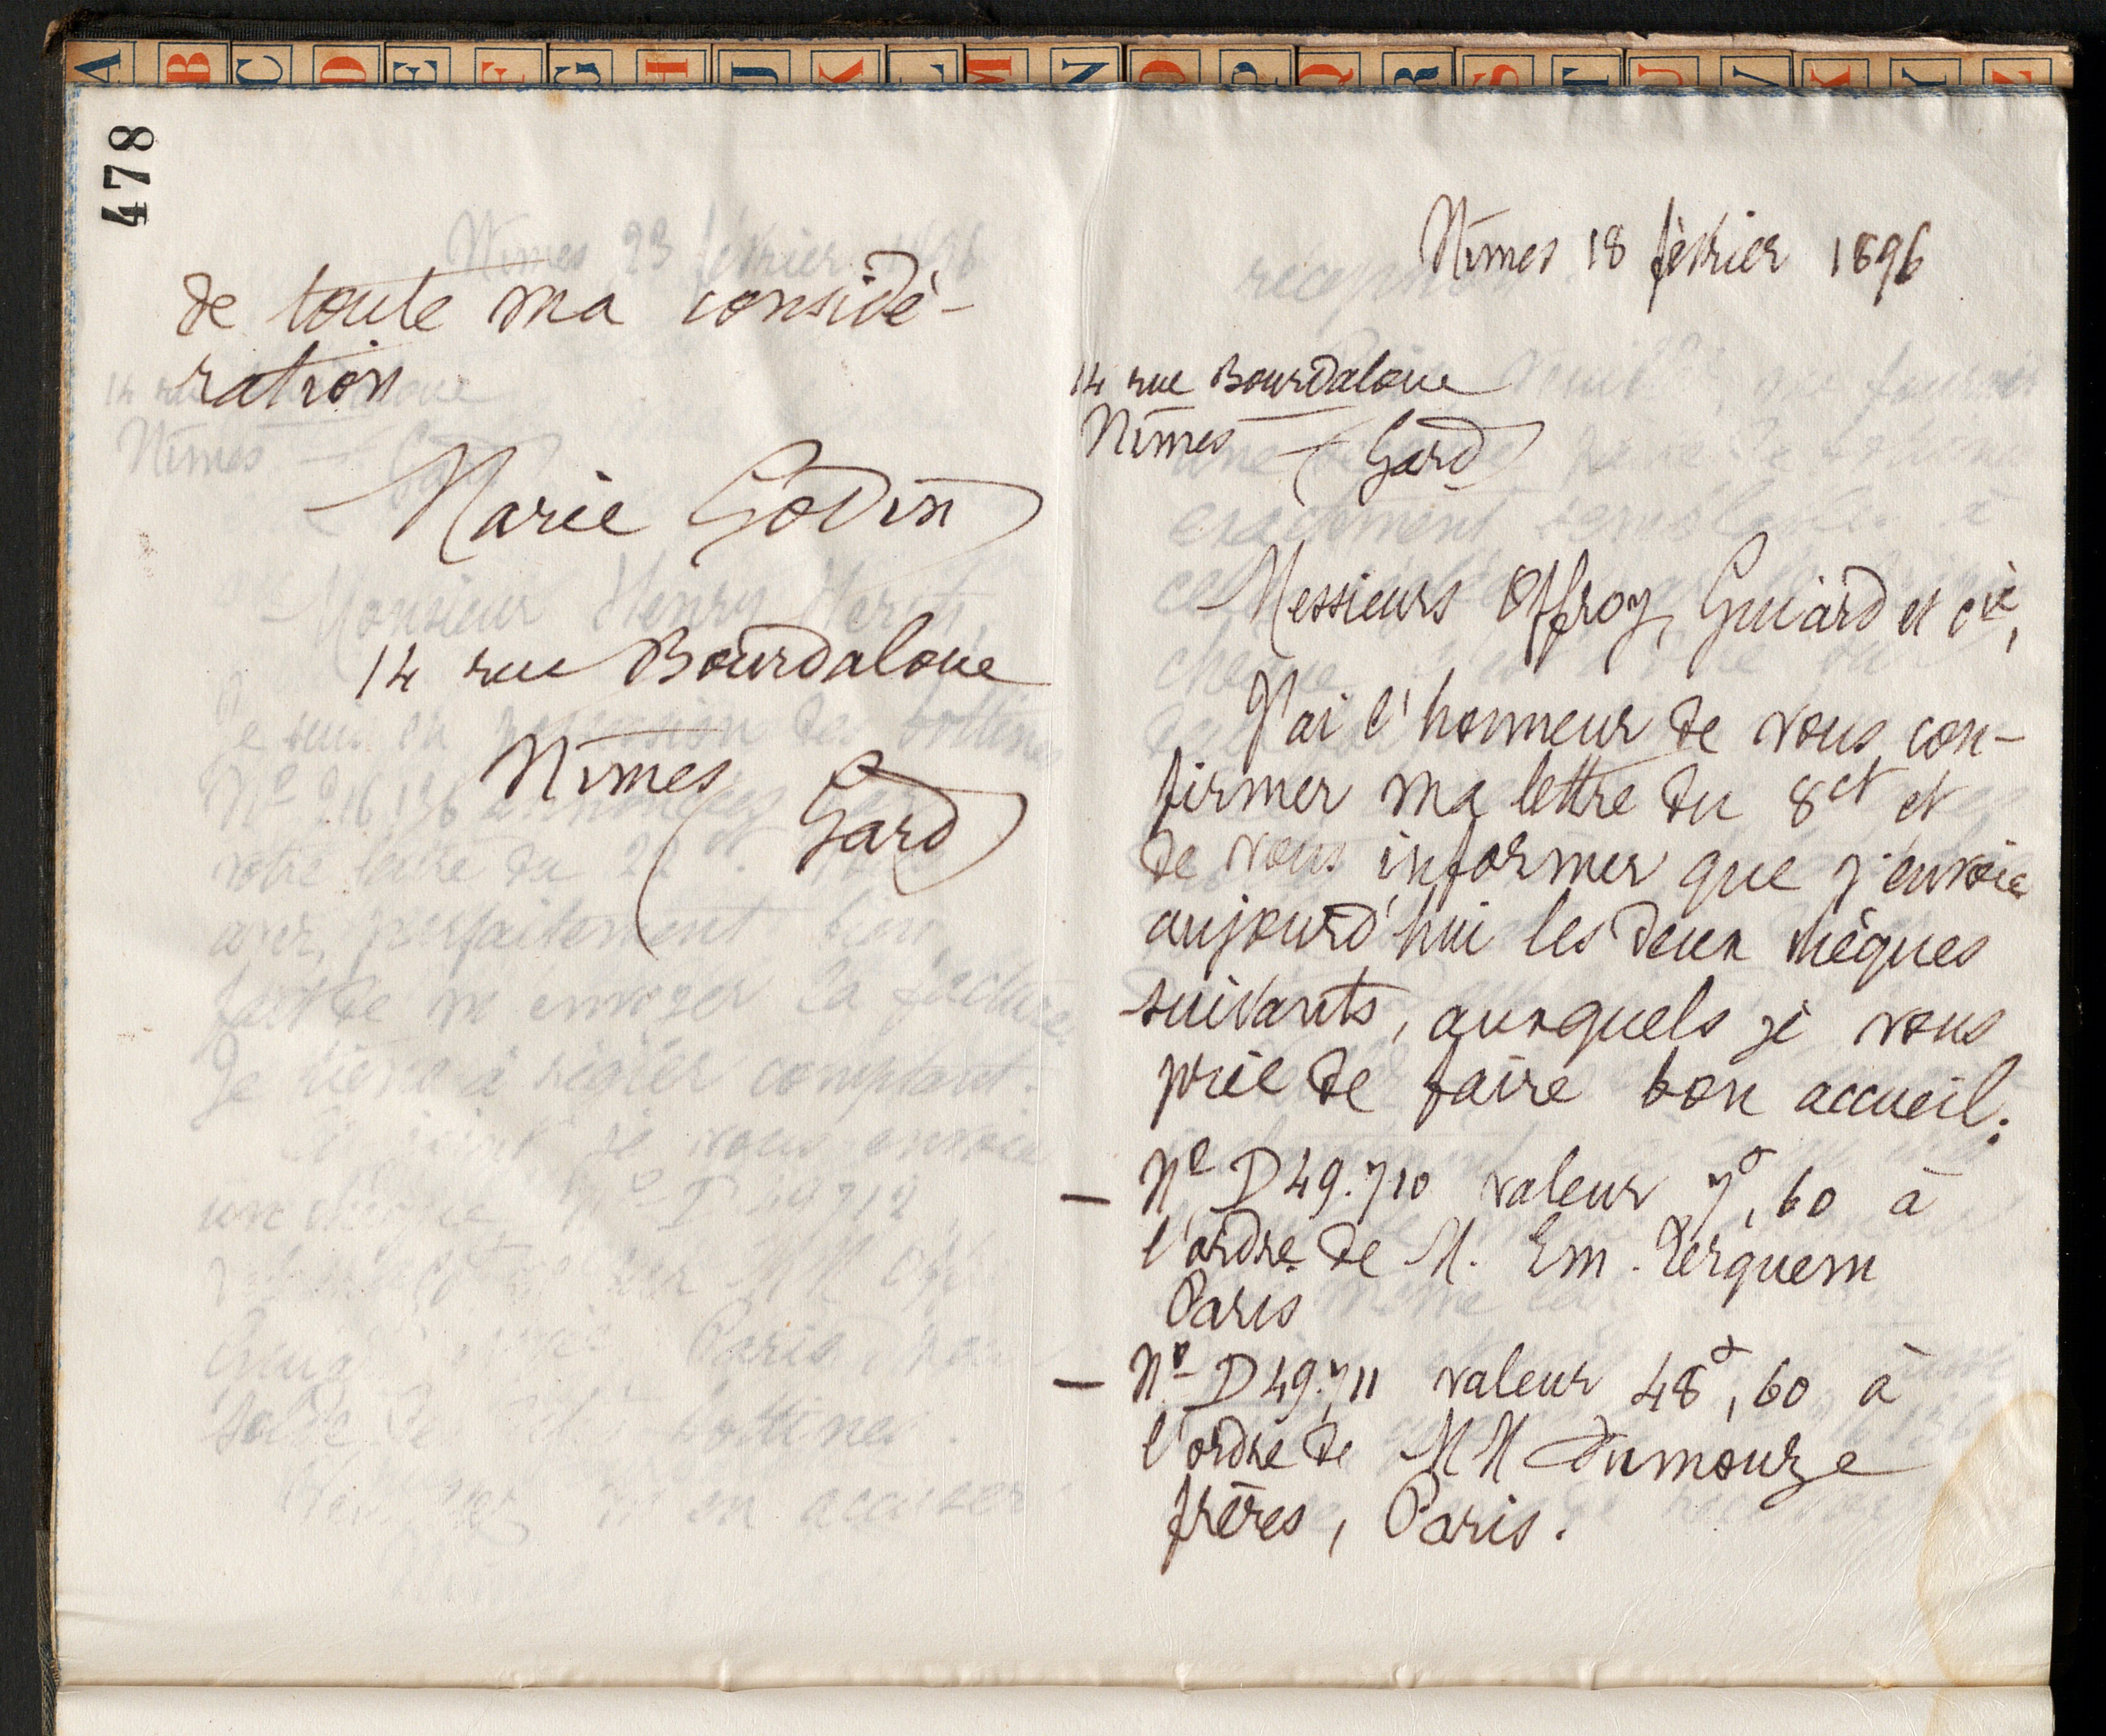 A B C D E F G H I J K L M N O P Q R S T U V X Y Z
478
de toute ma considé-
ration
Marie Godin
14 rue Bourdaloue
Nîmes
(Gard)
Nîmes 18 février 1896
14 rue Bourdaloue
Nîmes (Gard)
Messieurs Offroy, Guiard et Cie,
J'ai l'honneur de vous con-
firmer ma lettre du 8 ct et
de vous informer que j'envoie
aujourd'hui les deux chèques
suivants, auxquels je vous
prie de faire bon accueil:
— No D 49.710 valeur 7f, 60 à
l'ordre de M. Em. Terquem
Paris
— No D 49.711 valeur 48f, 60 à
l'ordre de MM Dumouze
frères, Paris.